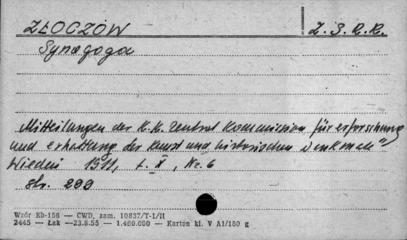 ZŁOCZÓW Z.S.R.R.
Synagoga
„Mitteilungen der K.K. Zentral Kommission für erforschung
und erhaltung der Kunst und historischen Denkmale”
Wiedeń 1911, t. X, Nr. 6
str. 290
Wzór Kb-156 — CWD, zam. 10837/T-1/II
2445 — Łak —23.8.55 — 1.460.000 — Karton kl. V A1/180 g